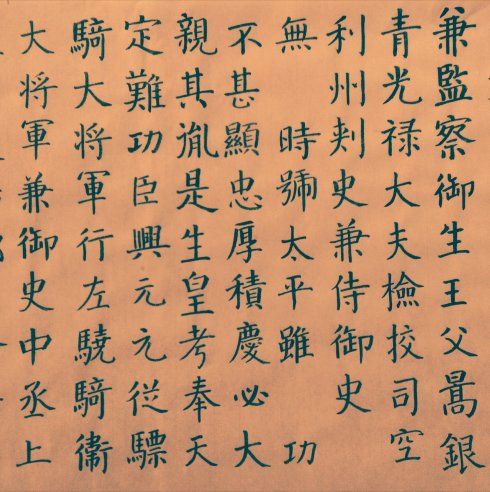 兼監察御生王父暠銀
青光禄大夫檢挍司空
利州刾史兼侍御史
無 時號太平雖 功
不甚顯忠厚積慶必大
親其胤是生皇考奉天
定難功臣興元元従驃
騎大将軍行左驍騎衛
大将軍兼御史中丞上